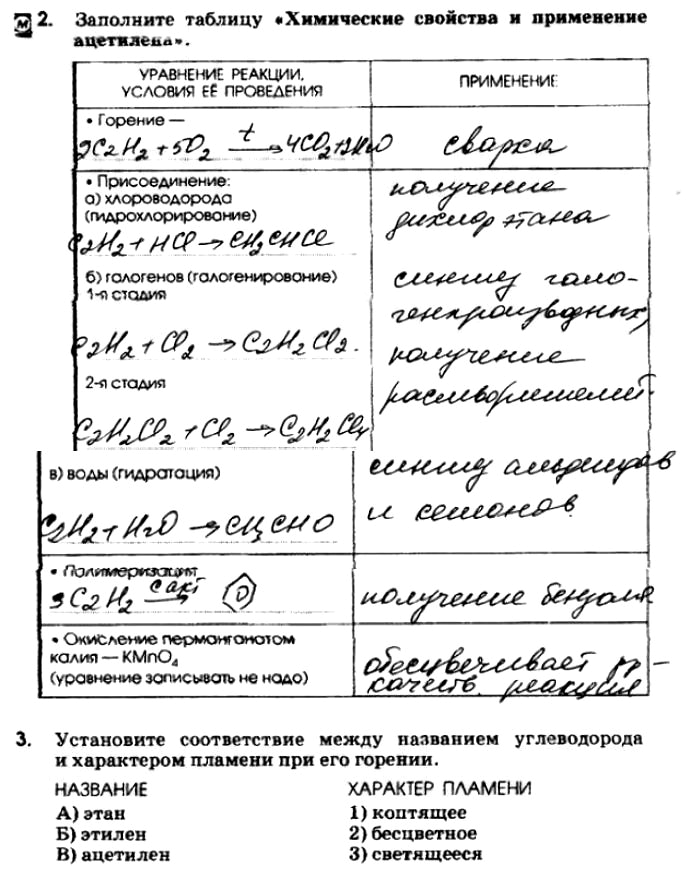 2. Заполните таблицу «Химические свойства и применение
ацетилена».
УРАВНЕНИЕ РЕАКЦИИ,
УСЛОВИЯ ЕЁ ПРОВЕДЕНИЯ
ПРИМЕНЕНИЕ
• Горение —
2C2H2 + 5O2 —t→ 4CO2 + 2H2O
сварка
• Присоединение:
а) хлороводорода
(гидрохлорирование)
C2H2 + HCl → CH2CHCl
получение
дихлорэтана
б) галогенов (галогенирование)
1-я стадия
C2H2 + Cl2 → C2H2Cl2.
2-я стадия
C2H2Cl2 + Cl2 → C2H2Cl4
синтез гало-
генпроизводных,
получение
растворителей
в) воды (гидратация)
C2H2 + H2O → CH3CHO
синтез альдегидов
и кетонов.
• Полимеризация
3C2H2 —Cакт→
получение бензола
• Окисление перманганатом
калия — KMnO4
(уравнение записывать не надо)
обесцвечивает рр –
качеств. реакция
3. Установите соответствие между названием углеводорода
и характером пламени при его горении.
НАЗВАНИЕ
А) этан
Б) этилен
В) ацетилен
ХАРАКТЕР ПЛАМЕНИ
1) коптящее
2) бесцветное
3) светящееся